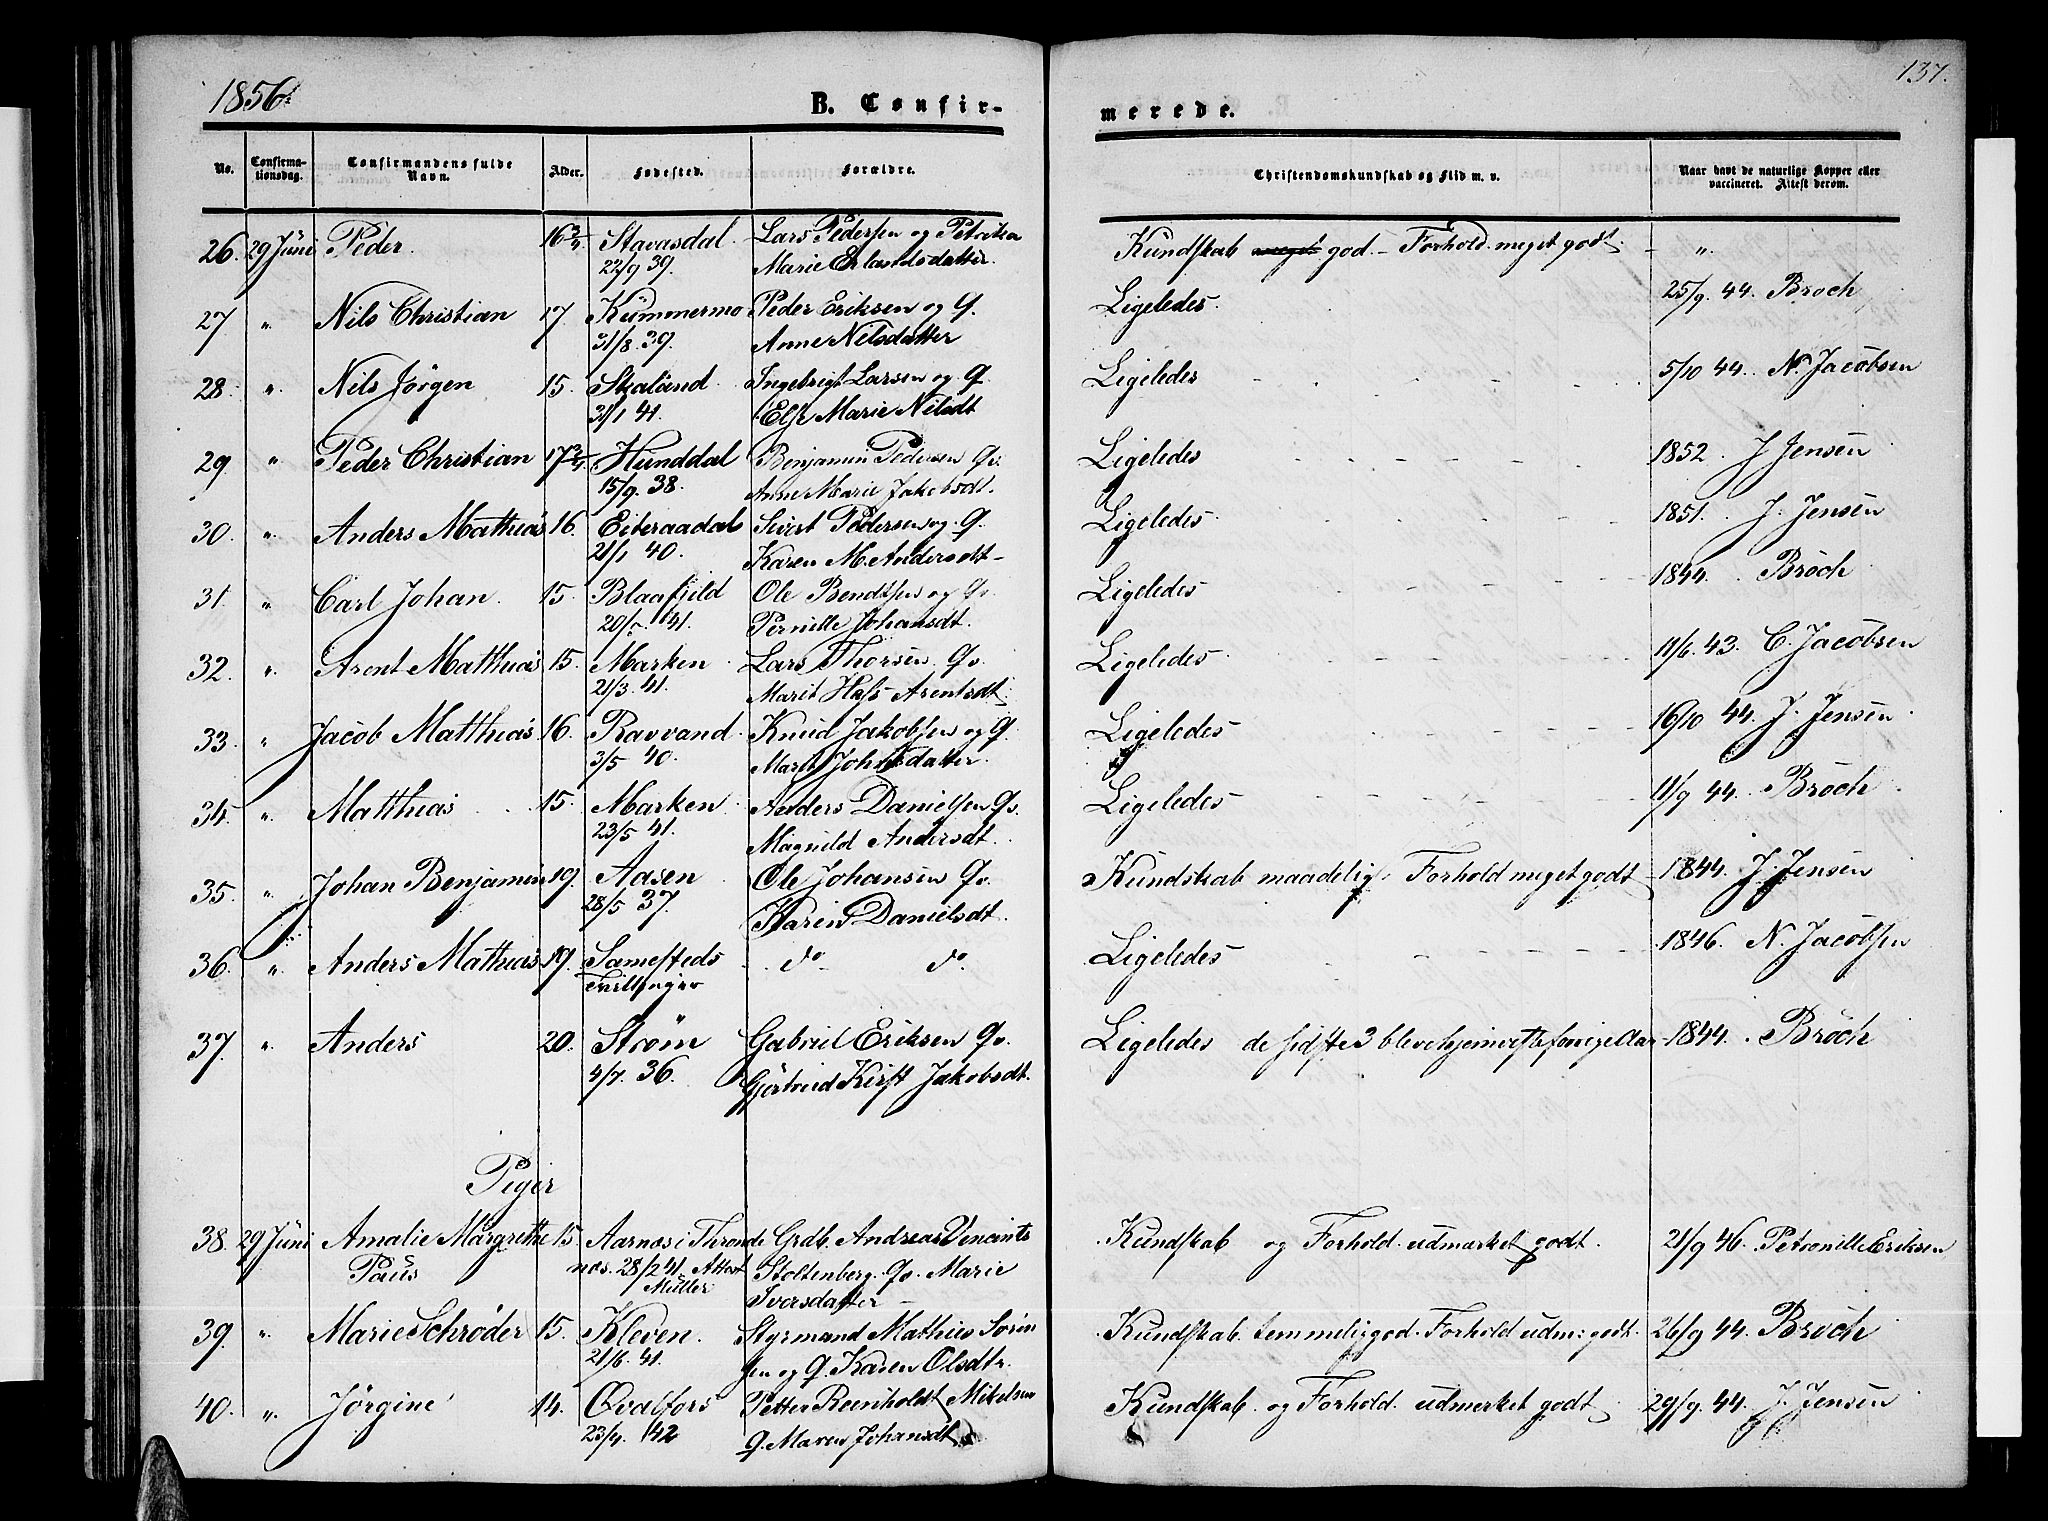 1856.
B. Confir-
merede.
137.
No.
Confirma-
tionsdag.
Confirmandens fulde
Navn.
Alder.
Fødested.
Forældre.
Christendomskundskab og Flid m. v.
Naar havt de naturlige Kopper eller
vaccineret. Attest derom.
26. 29 Juni Peder. 16 3/4 Stavasdal. Lars Pedersen og
22/9 39. Marie Erlandsdatter.
Kundskab meget god - Forhold meget godt. - "
27 " Nils Christian 17. Kummermo Peder Eriksen og Q.
31/8. 39. Anne Nilsdatter
Ligeledes. 25/9. 44. Broch
28. " Nils Jörgen 15. Skaland Ingebrigt Larsen og Q.
31/1 41. Else Marie Nilsdt
Ligeledes 5/10 44. N. Jacobsen
29. " Peder Christian 17 3/4 Hunddal Benjamin Pedersen Qv.
15/9. 38. Anne Marie Jakobsdt.
Ligeledes 1852. J Jensen
30. " Anders Mathias 16. Eiteraadal Sivert Pedersen og Q.
21/1 40. Karen M. Andersdt-
Ligeledes 1851. J. Jensen
31. " Carl Johan. 15. Blaafjeld Ole Bendtsen og Qv.
41. Pernille Johansdt.
Ligeledes 1844. Broch
32. " Arent Matthias 15. Marken Lars Thorsen Qv.
21/3. 41. Marit Arentsdt
Ligeledes 11/6. 43. C. Jacobsen
33. " Jacob Matthias 16. Ravvand Knud Jakobsen og Q.
3/5 40. Marit Johnsdatter.
Ligeledes 16/10 44. J. Jensen
34. " Matthias 15. Marken Anders Danielsen Qv.
23/5 41. Magnild Andersdt.
Ligeledes 11/9 44. Broch
35. " Johan Benjamin 19. Aasen Ole Johansen Qv.
28/5 37. Karen Danielsdt.
Kundskab maadelig. Forhold meget godt 1844. J. Jensen
36. " Anders Mathias 19. Samesteds do do
Tvillinger
Ligeledes 1846. N. Jacobsen
37. " Anders 20. Strøm Gabriel Eriksen Qv.
4/7. 36. Gjertrud Kirst Jakobsdt.
Ligeledes de sidste 3 bleve hjemviste forrige Aar 1844. Broch
Piger
38. 29 Juni Amalie Margrethe 15. Aarnæs i Throndenæs Grdb. Andreas
Paus 28/2 41. Attest Stoltenberg. Qv. Marie
Müller Iversdatter
Kundskab og Forhold udmærket godt. 21/9 46. Petronille Eriksen
39. " Marie Schrøder 15. Kleven. Styrmand Mathias Sørin
21/6. 41. sen og Q. Karen Olsdtr.
Kundskab temmelig god. Forhold udm: godt. 26/9 44. Broch
40. " Jörgine 14. Øvalfors Petter Reinholdt Mikelsen
23/4. 42 Q. Maren Johansdt
Kundskab og Forhold udmerket godt 29/9. 44. J. Jensen